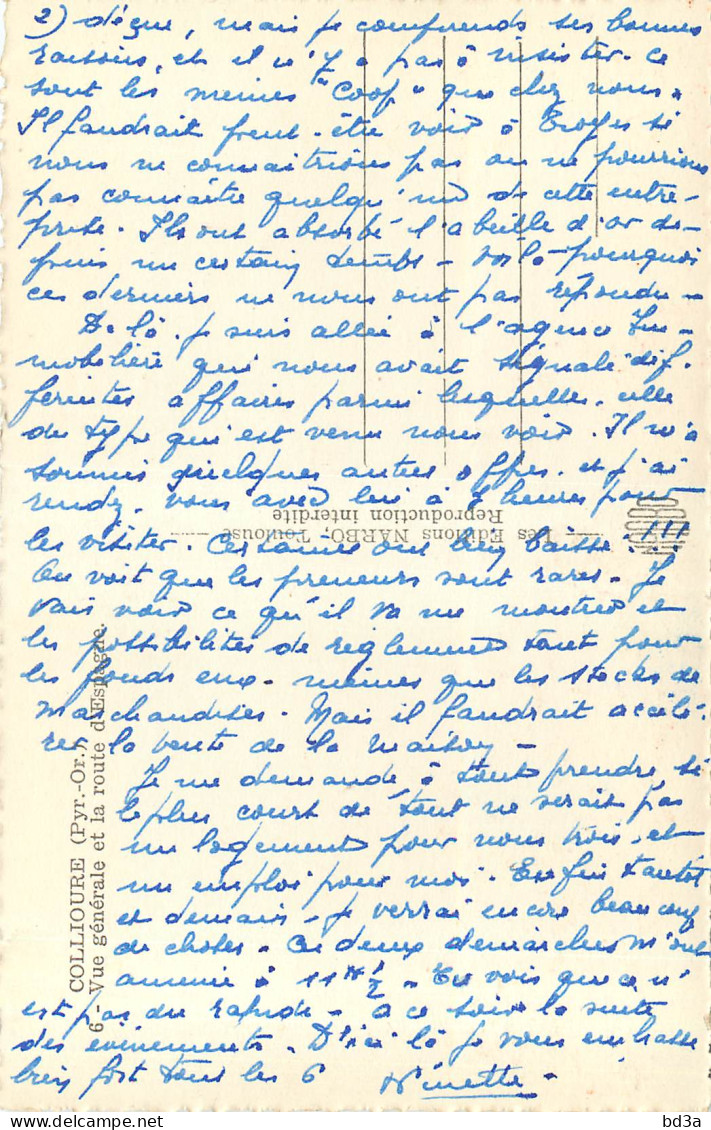 2) déçue, mais je comprends ses bonnes
raisons, et il n'y a pas à insister. Ce
sont les mêmes "Coop" que chez nous.
Il faudrait peut-être voir à Troyes si
nous ne connaitrions pas ou ne pourrions
pas connaître quelqu'un de cette entre-
prise. Ils ont absorbé l'abeille d'or de-
puis un certain temps - voilà pourquoi
ces derniers ne nous ont pas répondu -
De là je suis allée à l'agence Im-
mobilière qui nous avait signalé dif-
férentes affaires parmi lesquelles celle
du type qui est venu nous voir. Il m'a
soumis quelques autres offres. et j'ai
rendez-vous avec lui à 2 heures pour
les visiter. Certaines ont bien baissé !!!
On voit que les preneurs sont rares. Je
vais voir ce qu'il va me montrer et
les possibilités de règlement tant pour
les fonds eux-mêmes que les stocks de
marchandises. Mais il faudrait accélé-
rer la vente de la maison -
Je me demande à tout prendre, si
le plus court de tout ne serait pas
un logement pour nous trois, et
un emploi pour moi. Enfin tantôt
et demain je verrai encore beaucoup
de choses. Ces deux démarches m'ont
amenée à 11H 1/2. Tu vois que ce n'
est pas du rapide. à ce soir la suite
des évènements. D'ici là je vous embrasse
bien fort tous les 6 Ninette
Les Editions NARBO, Toulouse
Reproduction interdite
COLLIOURE (Pyr.-Or.)
6 - Vue générale et la route d'Espagne.
bd3a